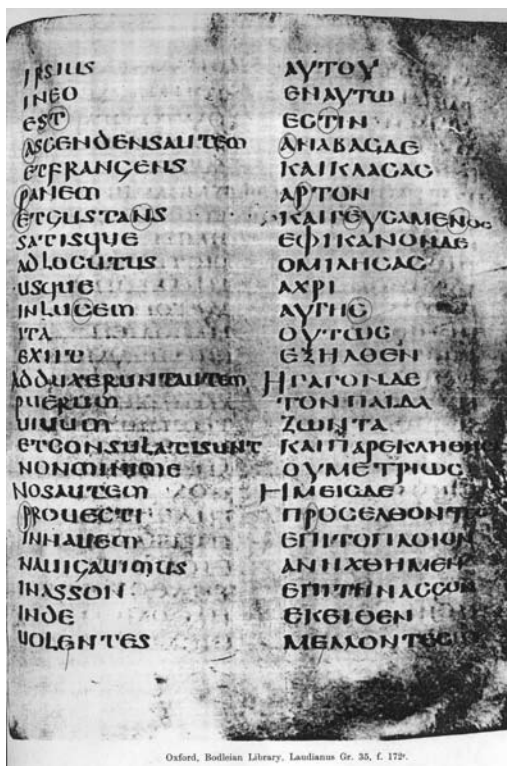 IPSIUS
INEO
EST
ASCENDENSAUTEM
ETFRANGENS
PANEM
ETGUSTANS
SATISQUE
ADLOCUTUS
USQUE
INLUCEM
ITA
EXIIT
ADDUXERUNTAUTEM
PUERUM
UIUUM
ETCONSULATISUNT
NONMINIME
NOSAUTEM
PROUECTI
INNAUEM
NAUIGAUIMUS
INASSON
INDE
UOLENTES
ΑΥΤΟΥ
ΕΝΑΥΤΩ
ΕϹΤΙΝ
ΑΝΑΒΑϹΔΕ
ΚΑΙΚΛΑϹΑϹ
ΑΡΤΟΝ
ΚΑΙΓΕΥϹΑΜΕΝΟϹ
ΕΦΙΚΑΝΟΝΔΕ
ΟΜΙΛΗϹΑϹ
ΑΧΡΙ
ΑΥΓΗϹ
ΟΥΤΩϹ
ΕΞΗΛΘΕΝ
ΗΓΑΓΟΝΔΕ
ΤΟΝΠΑΙΔΑ
ΖΩΝΤΑ
ΚΑΙΠΑΡΕΚΛΗΘΗϹ
ΟΥΜΕΤΡΙΩϹ
ΗΜΕΙϹΔΕ
ΠΡΟϹΕΛΘΟΝΤΕϹ
ΕΠΙΤΟΠΛΟΙΟΝ
ΑΝΗΧΘΗΜΕΝ
ΕΠΙΤΗΝΑϹϹΟΝ
ΕΚΕΙΘΕΝ
ΜΕΛΛΟΝΤΕϹ
Oxford, Bodleian Library, Laudianus Gr. 35, f. 172ᵛ.